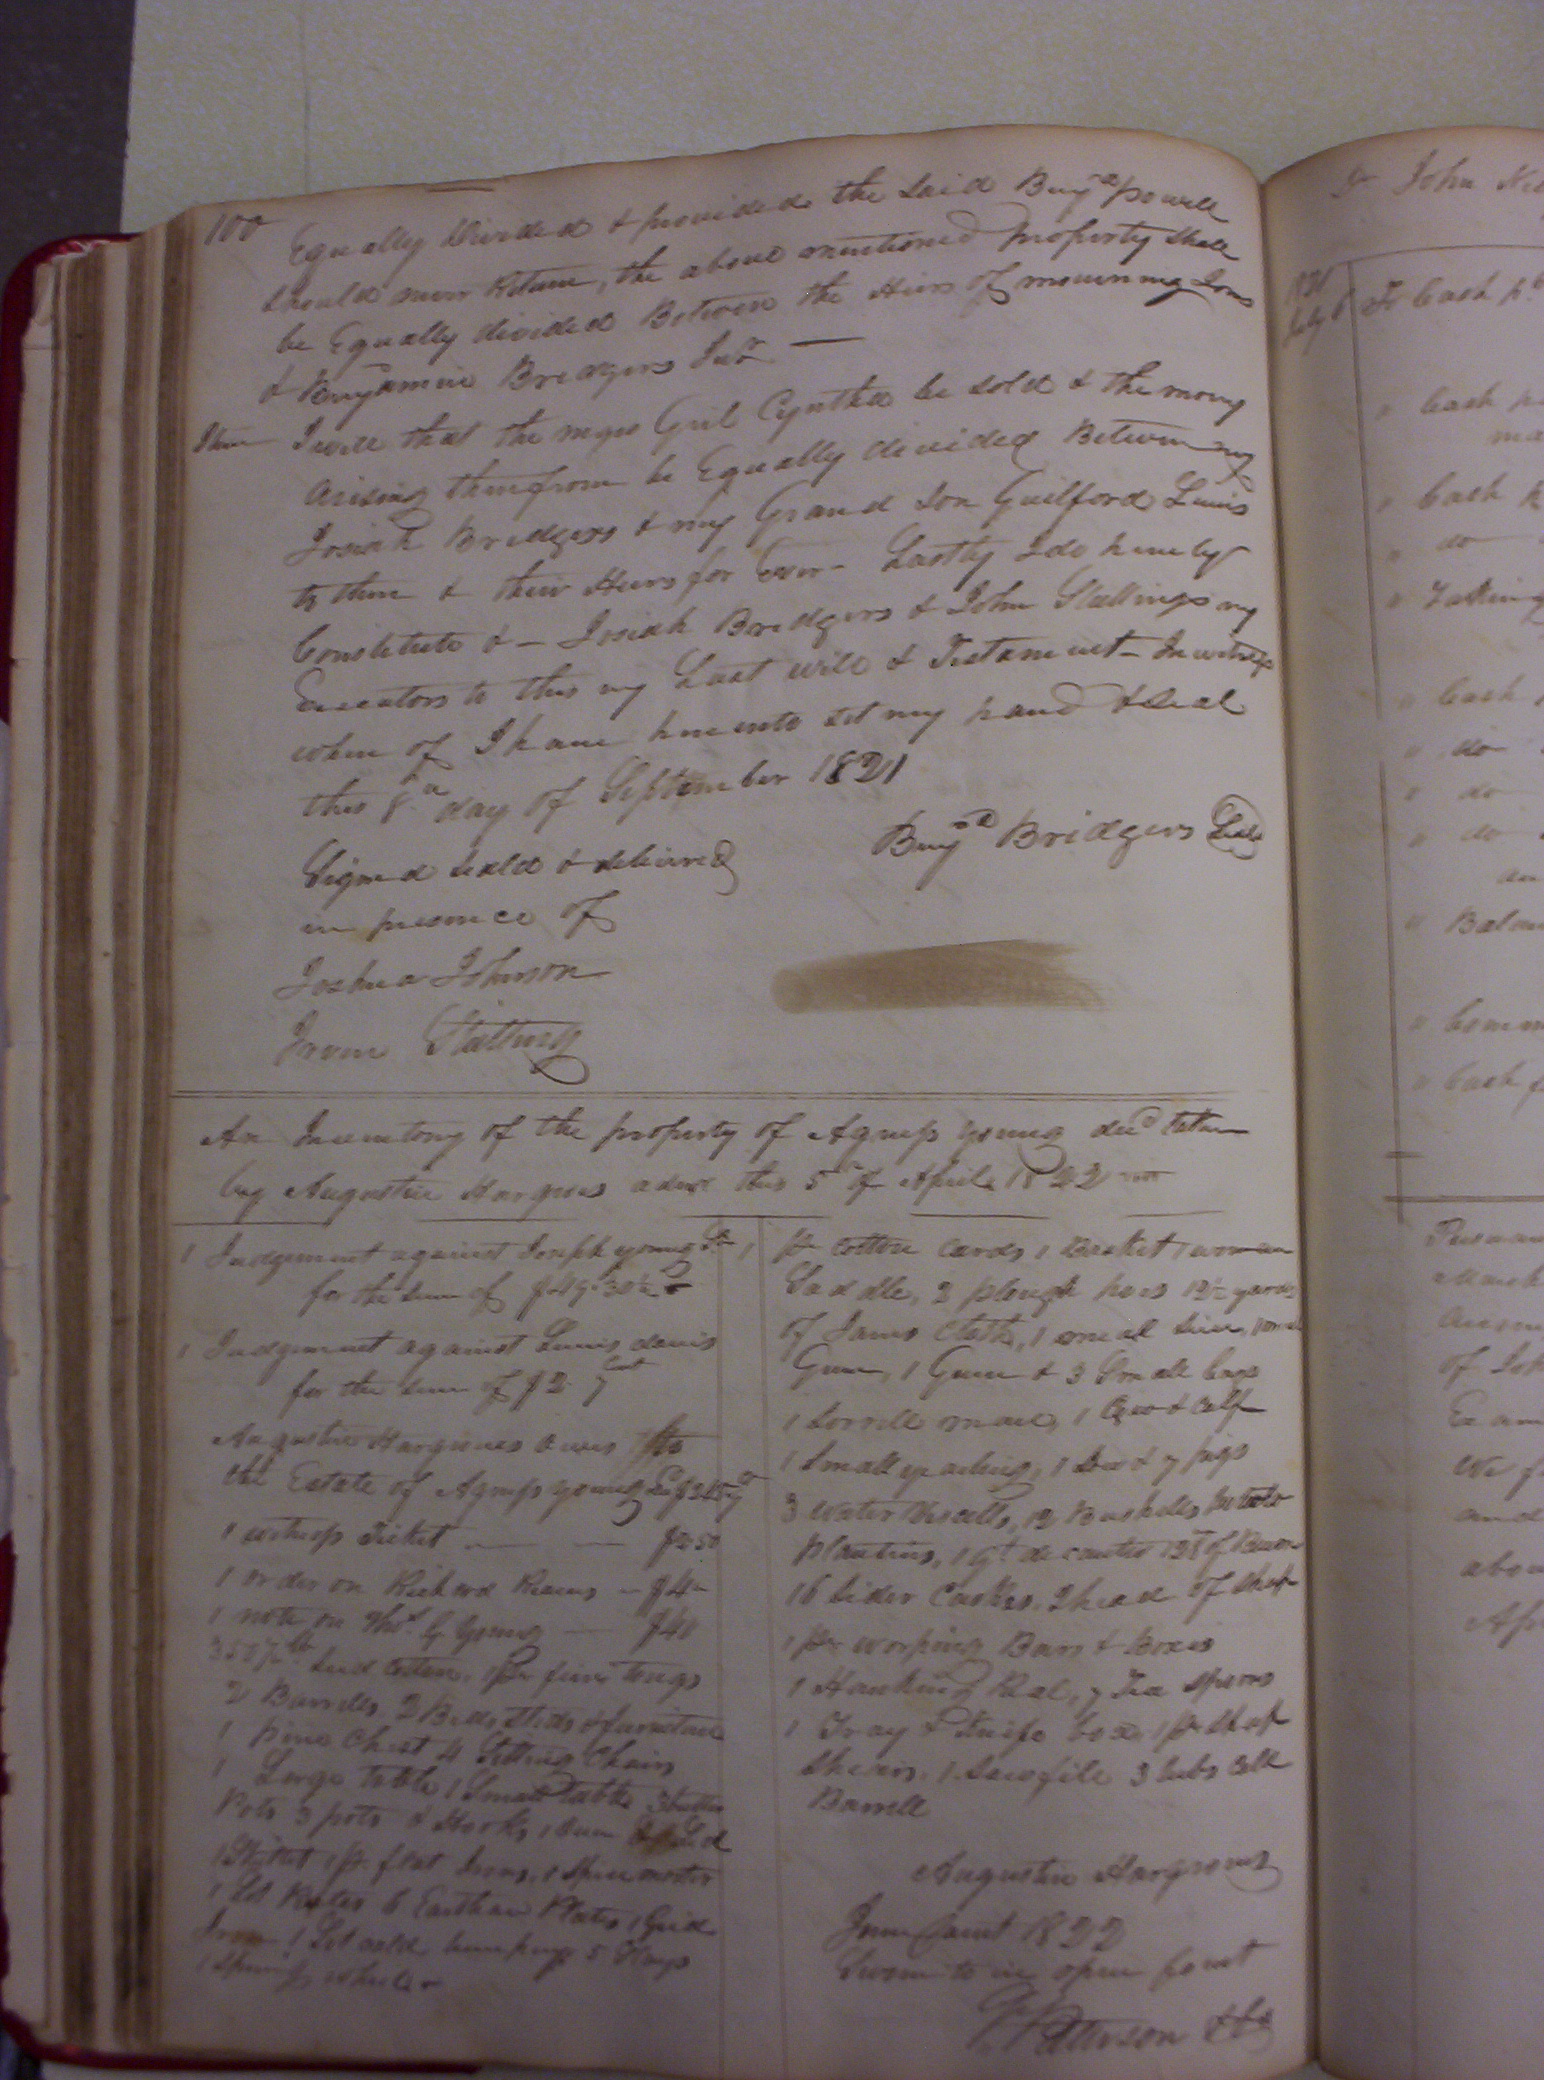 100
Equally Divided & provided the said Benjn powell
should never Return, the above mentioned property shall
be Equally divided Between the Heirs of mourning
& Benjamin Bridgers Junr
Item I will that the negro Girl Cyntha be sold & the money
arising therefrom be Equally divided Between my
Josiah Bridgers & my Grand son Guilford Lewis
to them & their Heirs for Ever - Lastly I do hereby
Constitute & - Josiah Bridgers & John Stallings my
Executors to this my Last will & Testament - In witness
where of I have hereunto set my hand & seal
this 8th day of September 1821
Benjn Bridgers Seal
Signed seald & delivered
in presence of
Joshua Johnson
Irvin Stallings
An Inventory of the property of Agness Young decd taken
by Augustin Hargroves admr this 5th of April 1822
1 Judgement against Joseph young Sr
for the sum of $49.30½
1 Judgement against Lewis davis
for the sum of $2. 7 Cent
Augustin Hargroves owes
the Estate of Agness young
1 witness Ticket - - $2.50
1 order on Richard - $4
1 note on Thos. G. Young - $40
Seed Cotton, 1 pr fire tongs
2 Barrels, 2 Beds Steds & furniture
1 pine Chest 4 Sitting Chairs
1 Large table 1 Small table 3 butter
Pots 3 pots & Hooks 1 oven & Lid
1 Skillet 1 pr flat Irons, 1 Spice morter
6 Earthen Plates 1 Grid
Iron 1 Lot 5 Slays
1 Spining wheel
1 pr cotton cards 1 Basket 1 woman
Saddle, 2 plough hoes 12½ yards
of Janes cloth, 1 meal sive, 1
Gum, 1 Gum & 3 Small bags
1 Sorrell mare, 1 Cow & Calf
1 Small yearling, 1 Sow & 7 pigs
3 water Vessells, 12 Bushells potato
plantins, 1 qt decanter of Bacon
16 Sider Casks, 2 head of Sheep
1 pr worping Bars & Boxes
1 Hanking Real, 7 Tea Spoons
1 Tray & Knife box, 1 pr Sheep
Shears, 1 Saw file 3 tubs
Barrell
Augustin Hargroves
June Court 1822
Sworn to in open Court
Patterson
Dr John
1821
July 6 To Cash pd
" Cash
" Cash
" do
"
" Cash
" do
" do
" do
" Balan
" Comm
" Cash
of
We
and